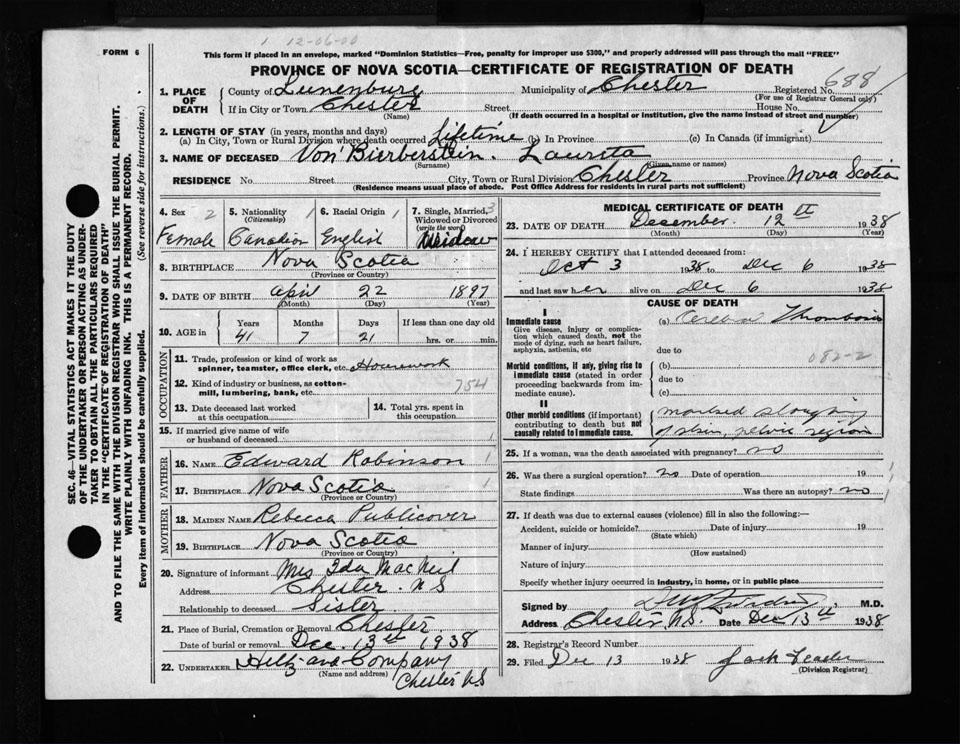 1 12-06-00
FORM 6
This form if placed in an envelope, marked "Dominion Statistics—Free, penalty for improper use $300," and properly addressed will pass through the mail "FREE"
PROVINCE OF NOVA SCOTIA—CERTIFICATE OF REGISTRATION OF DEATH
688
1. PLACE OF DEATH
County of Lunenburg Municipality of Chester Registered No.
(For use of Registrar General only)
If in City or Town Chester Street House No.
(Name) (If death occurred in a hospital or institution, give the name instead of street and number)
2. LENGTH OF STAY (in years, months and days)
(a) In City, Town or Rural Division where death occurred Lifetime (b) In Province (c) In Canada (if immigrant)
3. NAME OF DECEASED Von Bierberstein. Laurita
(Surname) (Given name or names)
RESIDENCE No. Street City, Town or Rural Division Chester Province Nova Scotia
(Residence means usual place of abode. Post Office Address for residents in rural parts not sufficient)
4. Sex 2
Female
5. Nationality 1
(Citizenship)
Canadian
6. Racial Origin 1
English
7. Single, Married, 3
Widowed or Divorced
(write the word)
Widow
8. BIRTHPLACE Nova Scotia
(Province or Country)
9. DATE OF BIRTH April 22 1897
(Month) (Day) (Year)
10. AGE in
Years Months Days If less than one day
41 7 21 hrs. or min.
OCCUPATION
11. Trade, profession or kind of work as
spinner, teamster, office clerk, etc. Housework
12. Kind of industry or business, as cotton-
mill, lumbering, bank, etc. 754
13. Date deceased last worked
at this occupation
14. Total yrs. spent in
this occupation
15. If married give name of wife
or husband of deceased 1
FATHER
16. NAME Edward Robinson 1
17. BIRTHPLACE Nova Scotia 1
(Province or Country)
MOTHER
18. MAIDEN NAME Rebecca Publicover
19. BIRTHPLACE Nova Scotia
(Province or Country)
20. Signature of informant Mrs Ida MacNeil
Address Chester. N S
Relationship to deceased Sister
21. Place of Burial, Cremation or Removal Chester
Date of burial or removal Dec. 13th 1938
22. UNDERTAKER Hiltz and Company
(Name and address) Chester N S
MEDICAL CERTIFICATE OF DEATH
23. DATE OF DEATH December. 12th 1938
(Month) (Day) (Year)
24. I HEREBY CERTIFY that I attended deceased from:
Oct 3 1938 to Dec 6 1938
and last saw her alive on Dec 6 1938
CAUSE OF DEATH
I
Immediate cause
Give disease, injury or complica-
tion which caused death, not the
mode of dying, such as heart failure,
asphyxia, asthenia, etc
(a) Cerebral Thrombosis
due to
082-2
Morbid conditions, if any, giving rise to
immediate cause (stated in order
proceeding backwards from im-
mediate cause).
(b)
due to
(c)
II
Other morbid conditions (if important)
contributing to death but not
causally related to immediate cause.
marked sloughing
of skin, pelvic region
25. If a woman, was the death associated with pregnancy? no
26. Was there a surgical operation? no Date of operation 19 1
State findings Was there an autopsy? no 1
27. If death was due to external causes (violence) fill in also the following:—
Accident, suicide or homicide? Date of injury 19
(State which)
Manner of injury
(How sustained)
Nature of injury
Specify whether injury occurred in industry, in home, or in public place
Signed by M.D.
Address Chester, N.S. Date Dec 13th 1938
28. Registrar's Record Number
29. Filed Dec 13 1938 Jack
(Division Registrar)
SEC. 46—VITAL STATISTICS ACT MAKES IT THE DUTY
OF THE UNDERTAKER OR PERSON ACTING AS UNDER-
TAKER TO OBTAIN ALL THE PARTICULARS REQUIRED
IN THE "CERTIFICATE OF REGISTRATION OF DEATH"
AND TO FILE THE SAME WITH THE DIVISION REGISTRAR WHO SHALL ISSUE THE BURIAL PERMIT.
WRITE PLAINLY WITH UNFADING INK. THIS IS A PERMANENT RECORD.
Every item of information should be carefully supplied. (See reverse side for instructions.)